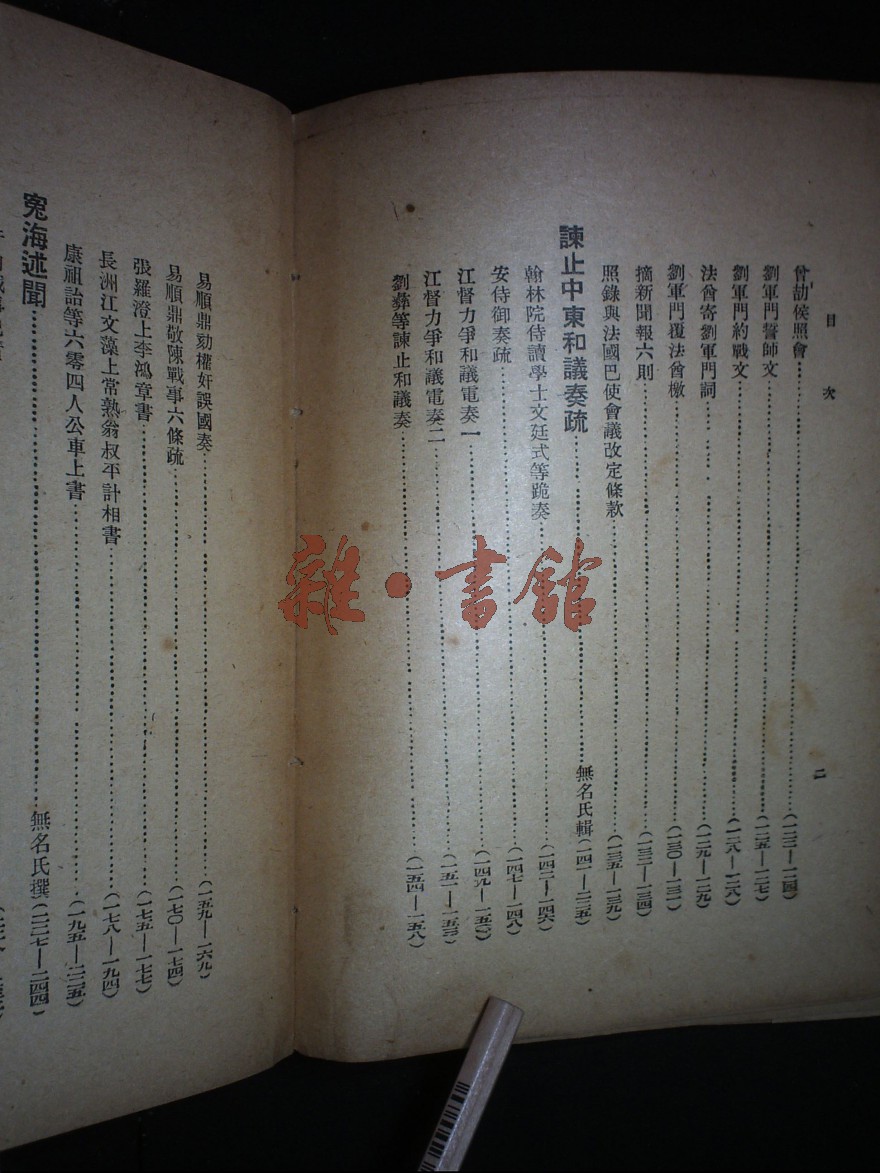 目次
二
曾劼侯照會……(一二三—一二四)
劉軍門誓師文……(一二五—一二七)
劉軍門約戰文……(一二八—一二八)
法酋寄劉軍門詞……(一二九—一二九)
劉軍門覆法酋檄……(一三〇—一三一)
摘新聞報六則……(一三二—一三四)
照錄與法國巴使會議改定條款……(一三五—一三九)
諫止中東和議奏疏……無名氏輯(一四一—二二五)
翰林院侍讀學士文廷式等跪奏……(一四二—一四六)
安侍御奏疏……(一四七—一四八)
江督力爭和議電奏一……(一四九—一五〇)
江督力爭和議電奏二……(一五一—一五三)
劉彝等諫止和議奏……(一五四—一五八)
易順鼎劾權奸誤國奏……(一五九—一六九)
易順鼎敬陳戰事六條疏……(一七〇—一七四)
張羅澄上李鴻章書……(一七五—一七七)
長洲江文藻上常熟翁叔平計相書……(一七八—一九四)
康祖詒等六零四人公車上書……(一九五—二二五)
冤海述聞……無名氏撰(二二七—二四四)
雜·書館